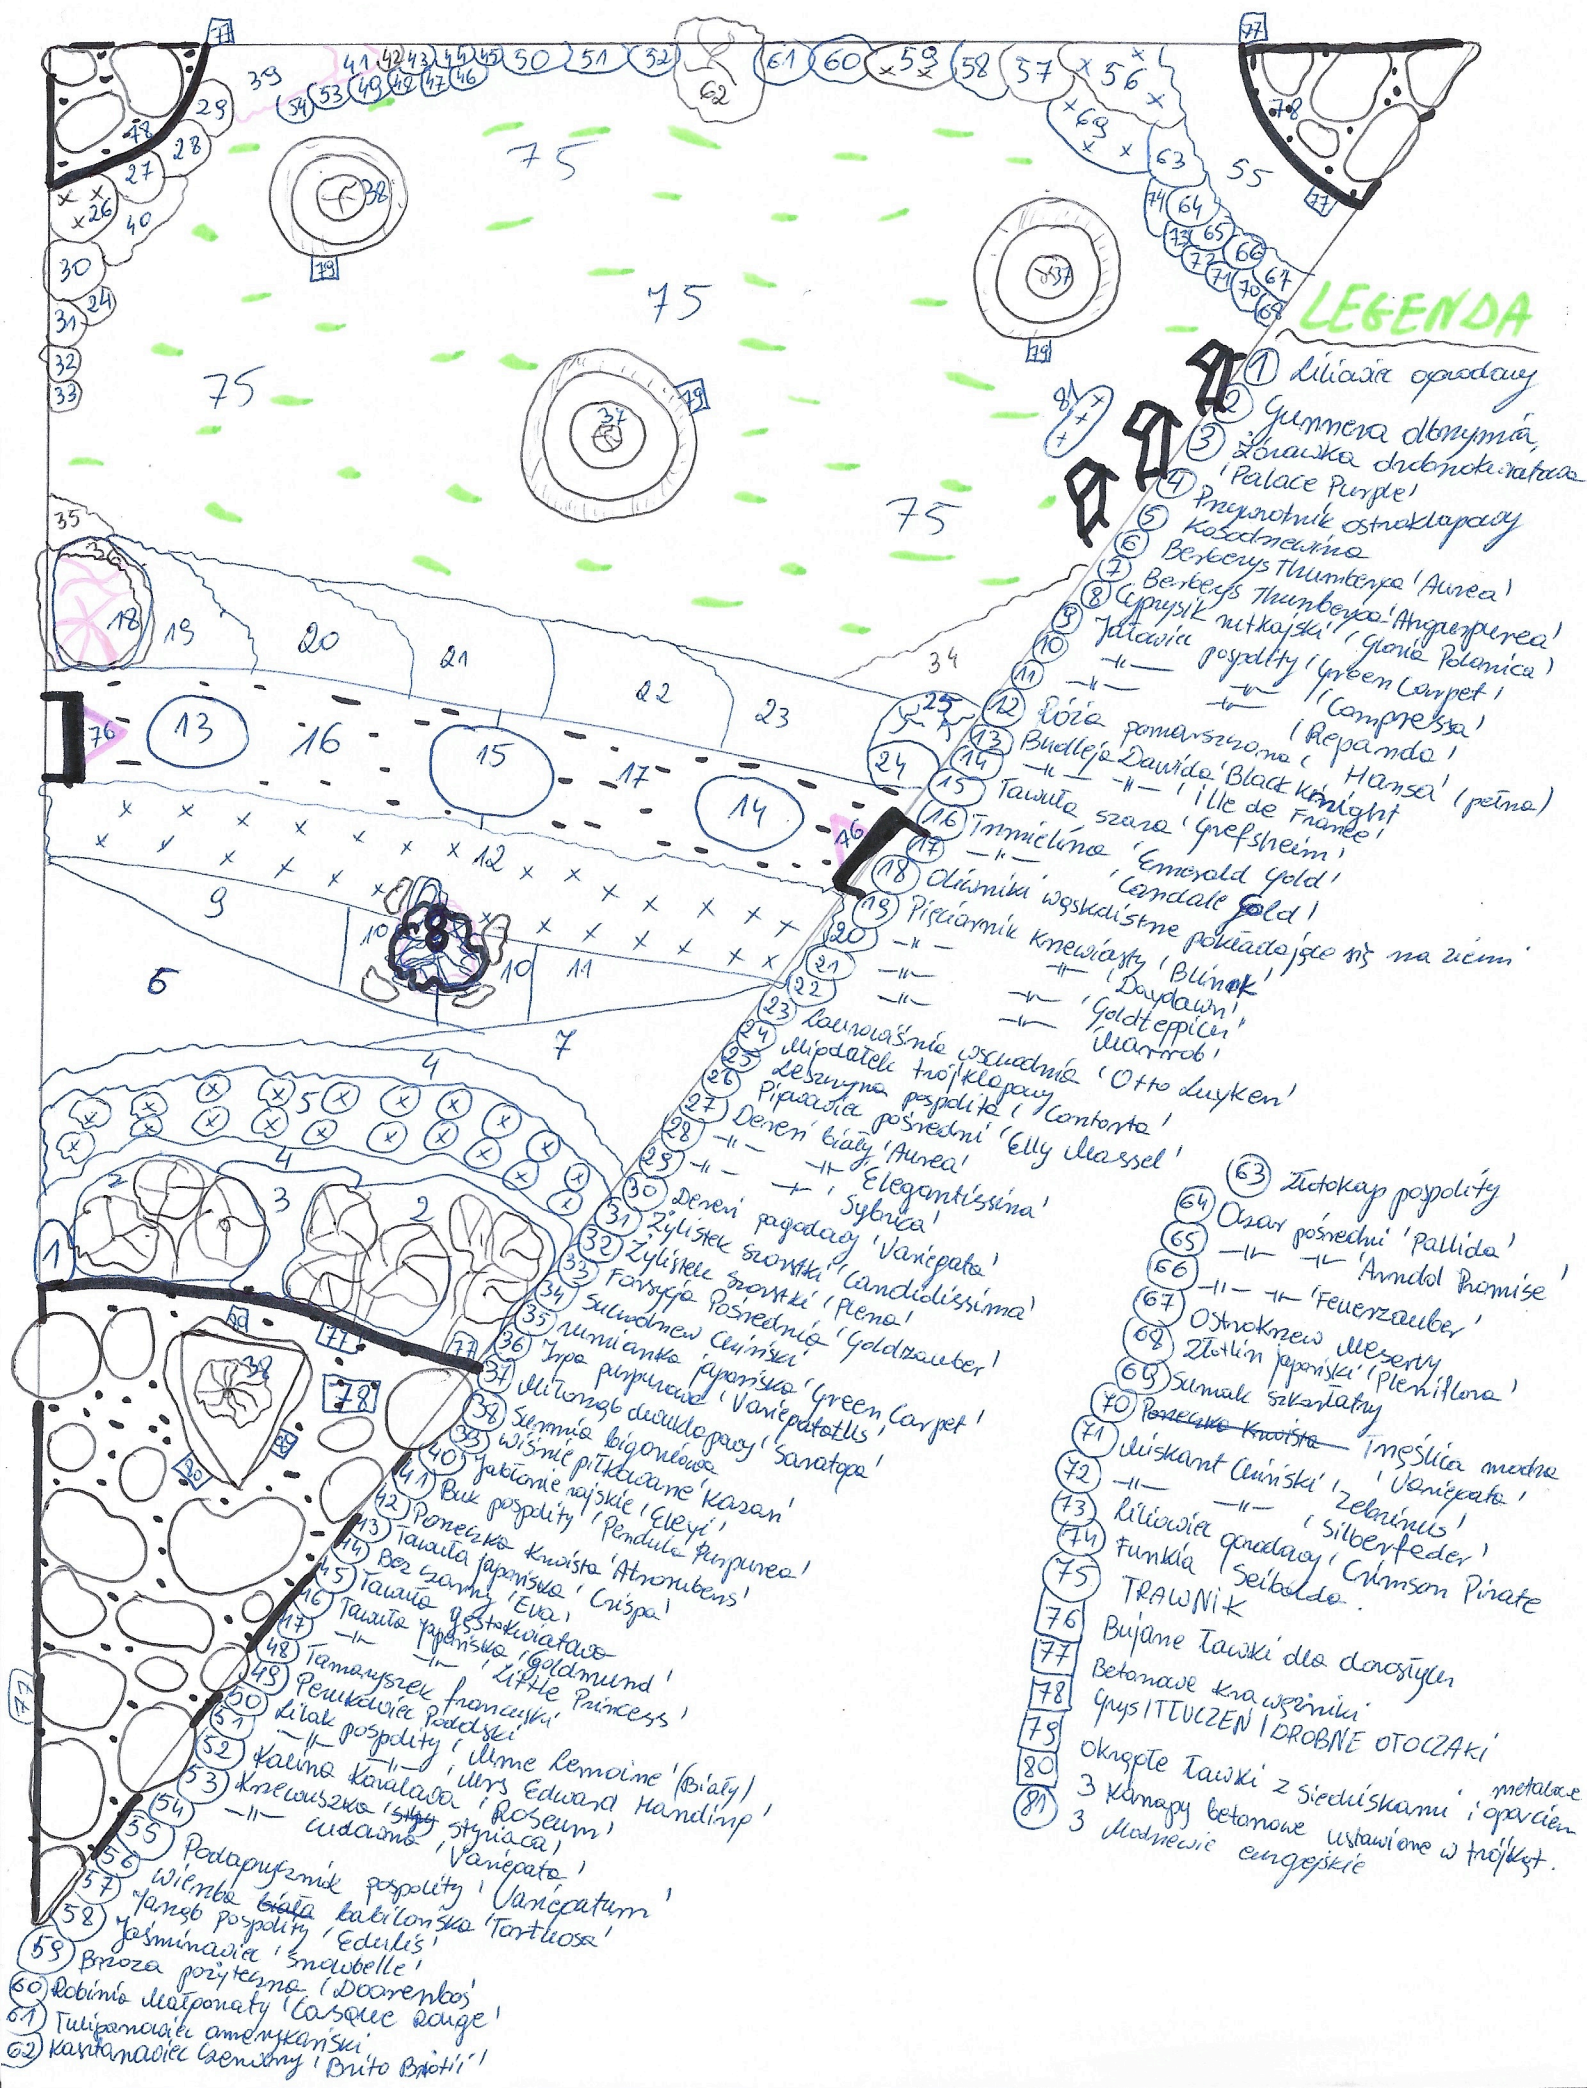 77
77
39
41
42
43
44
45
50
51
52
62
61
60
59
58
57
56
54
53
49
48
47
46
29
28
78
27
26
40
38
79
75
69
63
55
78
77
74
64
73
65
66
72
71
70
67
68
30
24
31
32
33
37
79
75
75
37
79
81
75
35
36
18
19
20
21
22
23
34
25
24
76
13
16
15
17
14
76
12
9
10
8
10
11
6
7
4
5
4
2
3
2
1
80
77
77
38
78
80
80
77
LEGENDA
1 Liliowiec ogrodowy
2 Gunnera olbrzymia
3 Żórawka drobnokwiatowa
'Palace Purple'
4 Przywrotnik ostroklapowy
5 Kosodrzewina
6 Berberys Thunberga 'Aurea'
7 Berberys Thunberga 'Atropurpurea'
8 Cyprysik nutkajski 'Gloria Polonica'
9 Jałowiec pospolity 'Green Carpet'
10 -"- -"- 'Compressa'
11 -"- -"- 'Repanda'
12 Róża pomarszczona 'Hansa' (pełna)
13 Budleja Dawida 'Black Knight
14 -"- -"- 'Ille de France'
15 Tawuła szara 'Grefsheim'
16 Trzmielina 'Emerald Gold'
17 -"- 'Candale Gold'
18 Oliwniki wąskolistne pokładające się na ziemi
19 Pięciornik krzewiasty 'Blink'
20 -"- -"- 'Daydawn'
21 -"- -"- 'Goldteppich'
22 -"- -"- 'Marrob'
23 Laurowiśnia wschodnia 'Otto Luyken'
24 Migdałek trójklapowy
25 Leszczyna pospolita 'Contorta'
26 Pigwowiec pośredni 'Elly Mossel'
27 Dereń biały 'Aurea'
28 -"- -"- 'Elegantissima'
29 -"- -"- 'Sybirica'
30 Dereń pagodowy 'Variegata'
31 Żylistek szorstki 'Candidissima'
32 Żylistek szorstki 'Plena'
33 Forsycja Pośrednia 'Goldzauber'
34 Suchodrzew Chiński
35 runianka japońska 'Green Carpet'
36 Irga purpurowa 'Variegatatus'
37 Miłorząb dwuklapowy 'Saratoga'
38 Surmia bigoniowa
39 Wiśnie piłkowane 'Kazan'
40 Jabłonie rajskie 'Eleyi'
41 Buk pospolity 'Pendula Purpurea'
42 Porzeczka Krwista 'Atrorubens'
43 Tawuła japońska 'Crispa'
44 Bez czarny 'Eva'
45 Tawuła gęstokwiatowa
46 Tawuła japońska 'Goldmund'
47 -"- -"- 'Little Princess'
48 Tamaryszek francuski
49 Perukowiec Podolski
50 Lilak pospolity 'Mme Lemoine' (Biały)
51 -"- -"- 'Mrs Edward Harding'
52 Kalina Koralowa 'Roseum'
53 Krzewuszka styriaca'
54 -"- cudowna 'Variegata'
55 Podagrycznik pospolity 'Variegatum'
56 Wierzba biała babilońska 'Tortuosa'
57 Jarząb pospolity 'Edulis'
58 Jaśminowiec 'Snowbelle'
59 Brzoza pożyteczna 'Doorenbos'
60 Robinia Małponaty 'Casque Rouge'
61 Tulipanowiec amerykański
62 Kasztanowiec Czerwony 'Brito Briotii'
63 Złotokap pospolity
64 Oczar pośredni 'Pallida'
65 -"- -"- 'Arnold Promise'
66 -"- -"- 'Feuerzauber'
67 Ostrokrzew Meservy
68 Złotlin japoński 'Pleniflora'
69 Sumak szkarłatny
70 Porzeczka Krwista Trzęślica modra
'Variegata'
71 Miskant Chiński 'Zebrinus'
72 -"- -"- 'Silberfeder'
73 Liliowiec ogrodowy 'Crimson Pirate
74 Funkia Seibolda.
75 TRAWNIK
76 Bujane Ławki dla dorosłych
77 Betonowe krawężniki
78 Grys/TŁUCZEŃ/DROBNE OTOCZAKI
79 okrągłe ławki z siedziskami i oparciem metalowe
80 3 kanapy betonowe ustawione w trójkąt.
81 3 Modrzewie europejskie